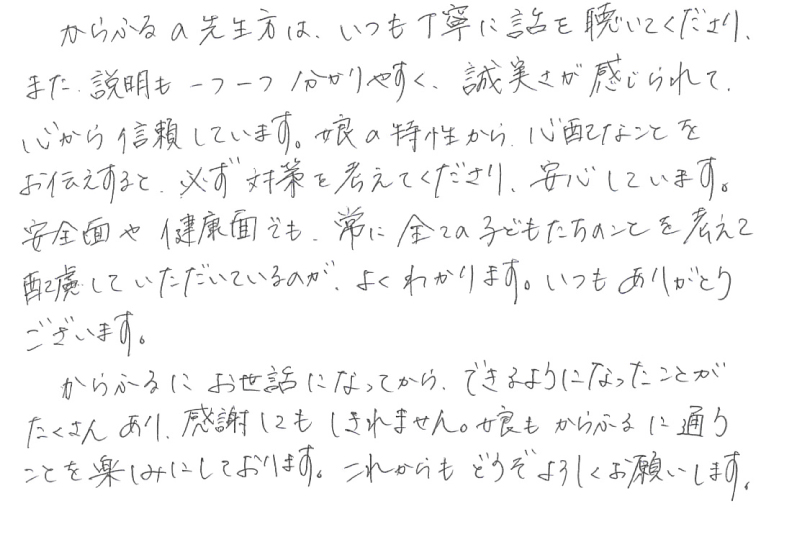 からふるの先生方は、いつも丁寧に話を聴いてくださり、
また、説明も一つ一つ分かりやすく、誠実さが感じられて、
心から信頼しています。娘の特性から、心配なことを
お伝えすると、必ず対策を考えてくださり、安心しています。
安全面や健康面でも、常に全ての子どもたちのことを考えて
配慮していただいているのが、よくわかります。いつもありがとう
ございます。
からふるにお世話になってから、できるようになったことが
たくさんあり、感謝してもしきれません。娘もからふるに通う
ことを楽しみにしております。これからもどうぞよろしくお願いします。